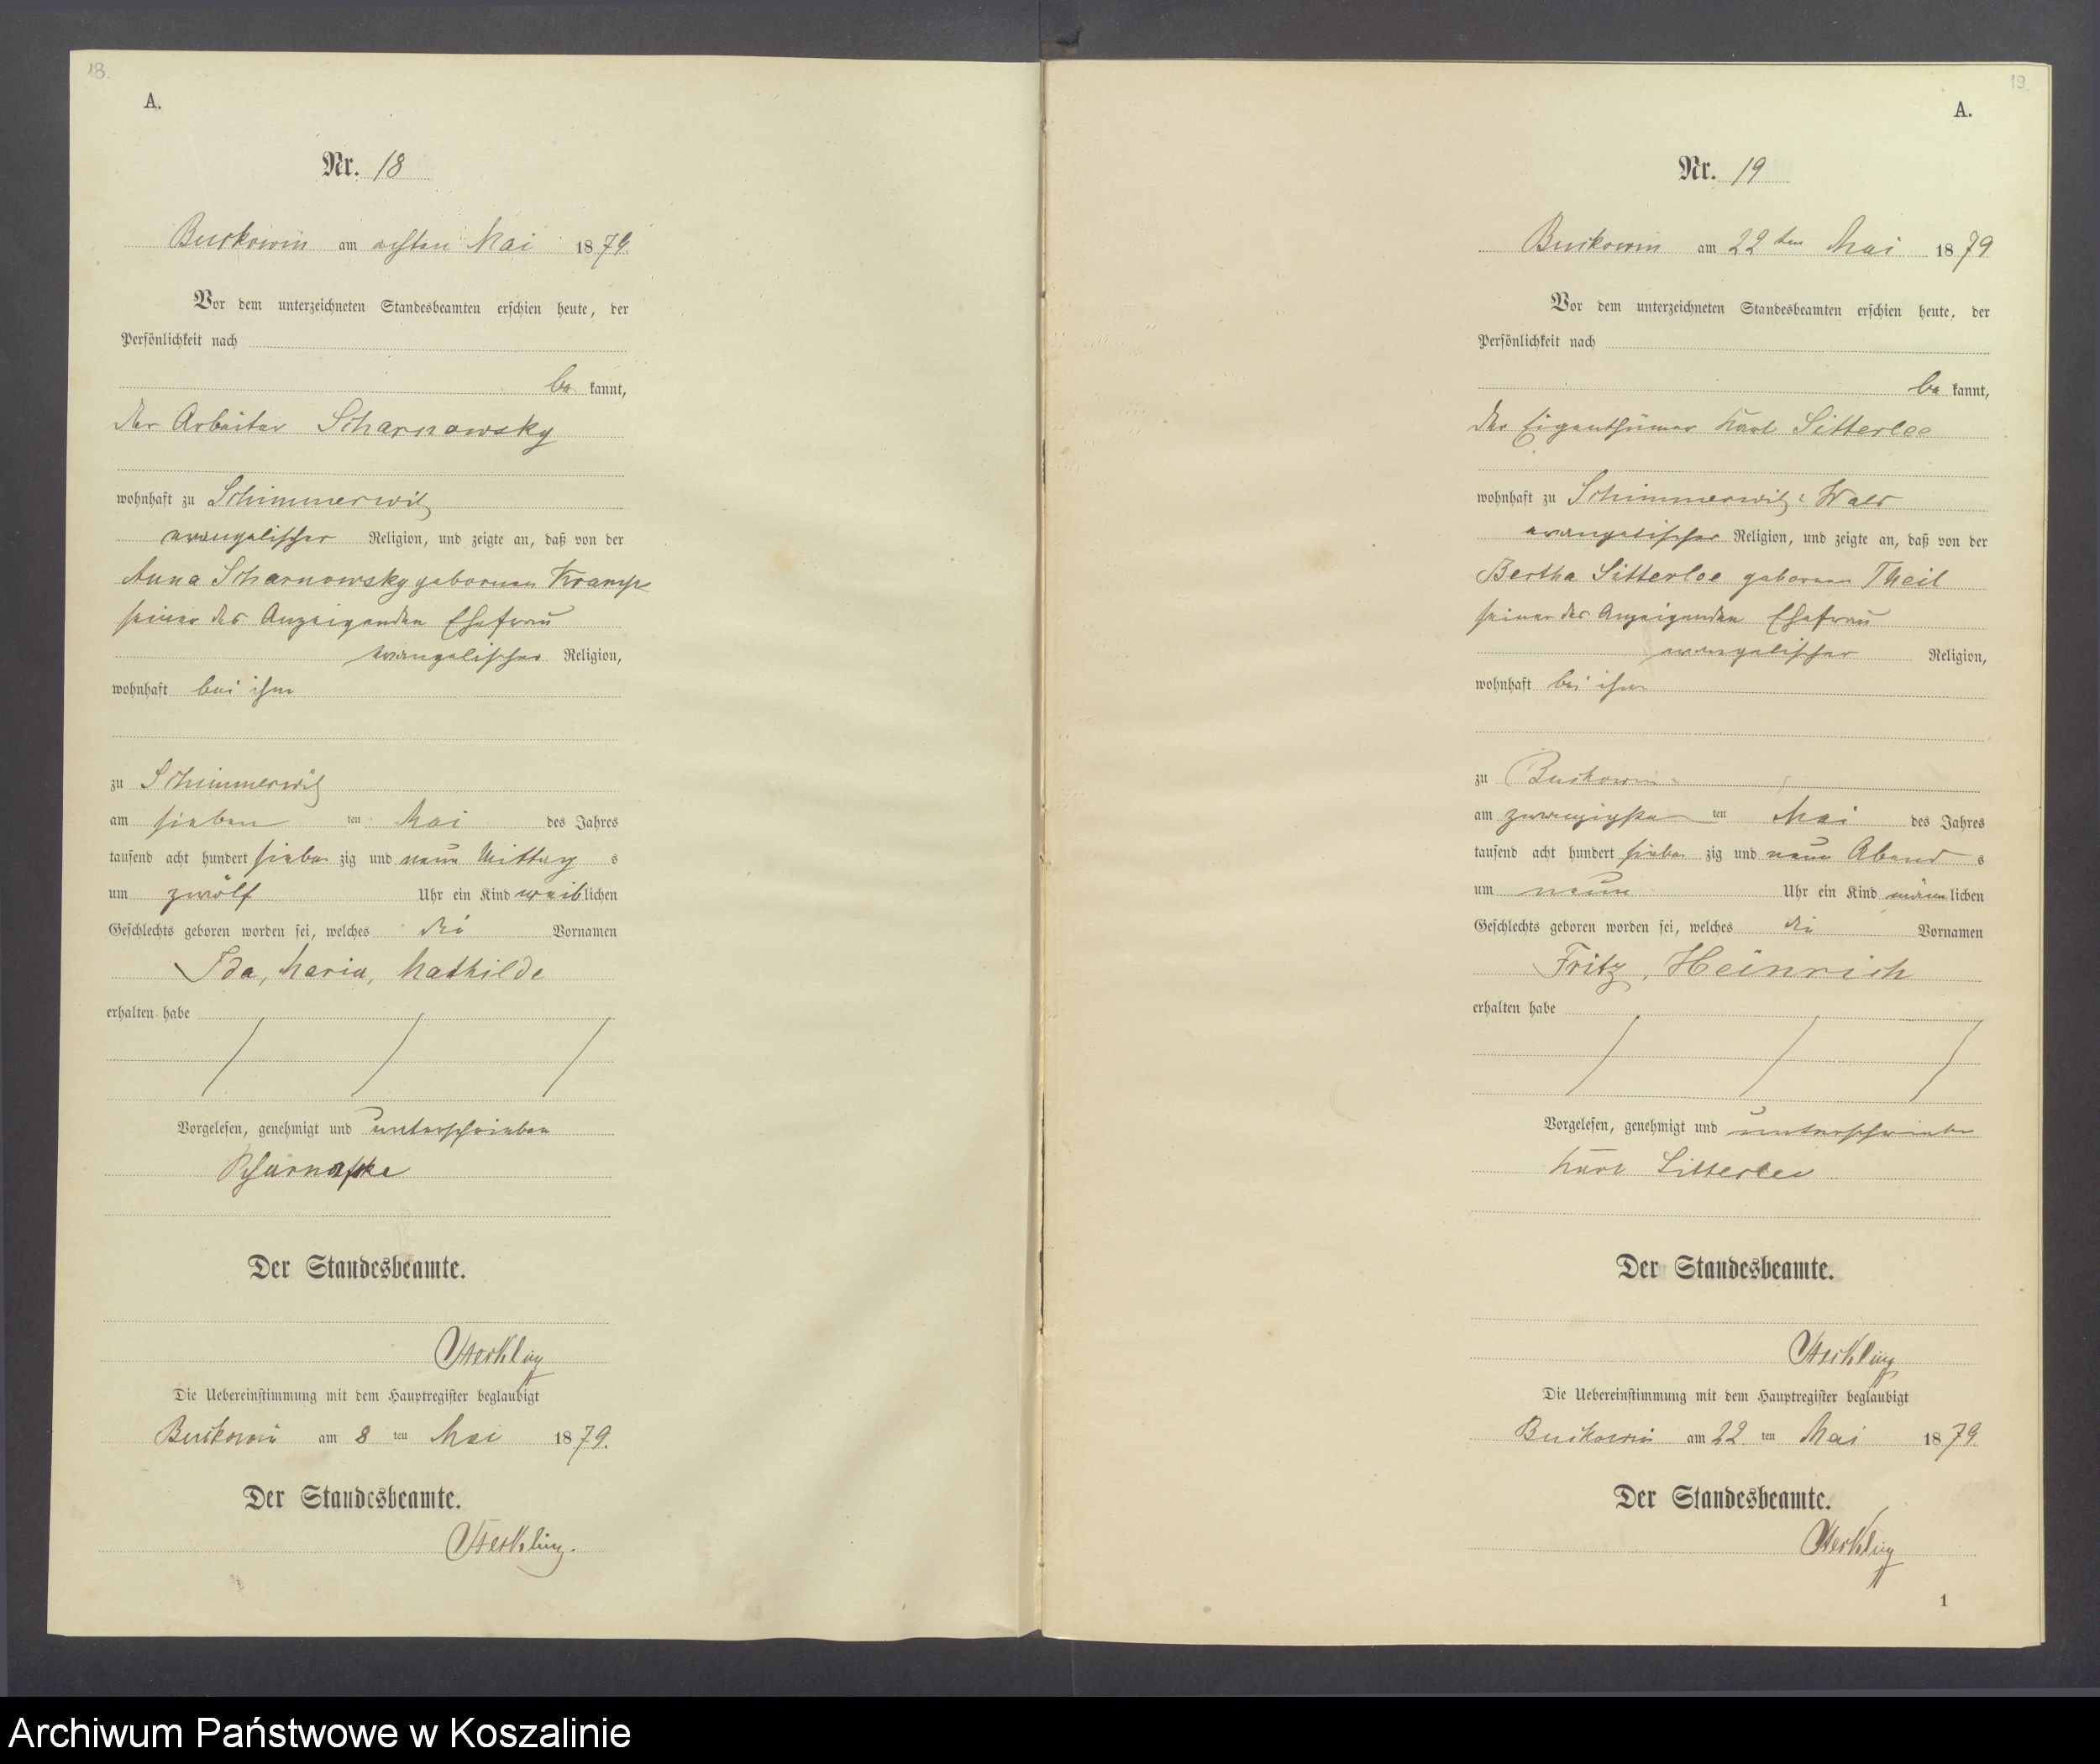 18.
A.
Nr. 18
Buckowin am achten Mai 1879.
Vor dem unterzeichneten Standesbeamten erschien heute, der
Persönlichkeit nach
be kannt,
der Arbeiter Scharnowsky
wohnhaft zu Schimmerwitz
evangelischer Religion, und zeigte an, daß von der
Anna Scharnowsky geborenen
seiner des Anzeigenden Ehefrau
evangelischer Religion,
wohnhaft bei ihm
zu Schimmerwitz
am sieben ten Mai des Jahres
tausend acht hundert sieben zig und neun Mittag s
um zwölf Uhr ein Kind weiblichen
Geschlechts geboren worden sei, welches die Vornamen
Ida, Maria, Mathilde
erhalten habe
Vorgelesen, genehmigt und unterschrieben
Der Standesbeamte.
Die Uebereinstimmung mit dem Hauptregister beglaubigt
Buckowin am 8 ten Mai 1879.
Der Standesbeamte.
19.
A.
Nr. 19
Buckowin am 22ten Mai 1879
Vor dem unterzeichneten Standesbeamten erschien heute, der
Persönlichkeit nach
be kannt,
der Eigenthümer Karl Sitterlee
wohnhaft zu Schimmerwitz: Wald
evangelischer Religion, und zeigte an, daß von der
Bertha Sitterloe geborenen Theil
seiner des Anzeigenden Ehefrau
evangelischer Religion,
wohnhaft bei ihm
zu Buckowin
am zwanzigsten ten Mai des Jahres
tausend acht hundert sieben zig und neun Abend s
um neun Uhr ein Kind männlichen
Geschlechts geboren worden sei, welches die Vornamen
Fritz, Heinrich
erhalten habe
Vorgelesen, genehmigt und unterschrieben
Karl Sitterlee
Der Standesbeamte.
Die Uebereinstimmung mit dem Hauptregister beglaubigt
Buckowin am 22. ten Mai 1879.
Der Standesbeamte.
1
Archiwum Państwowe w Koszalinie